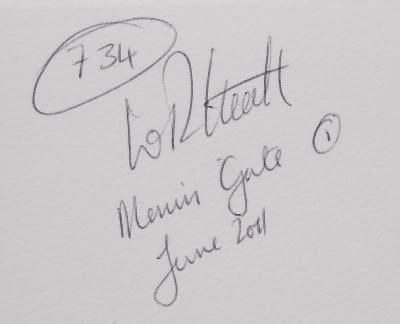 734
Menin Gate ①
June 2011